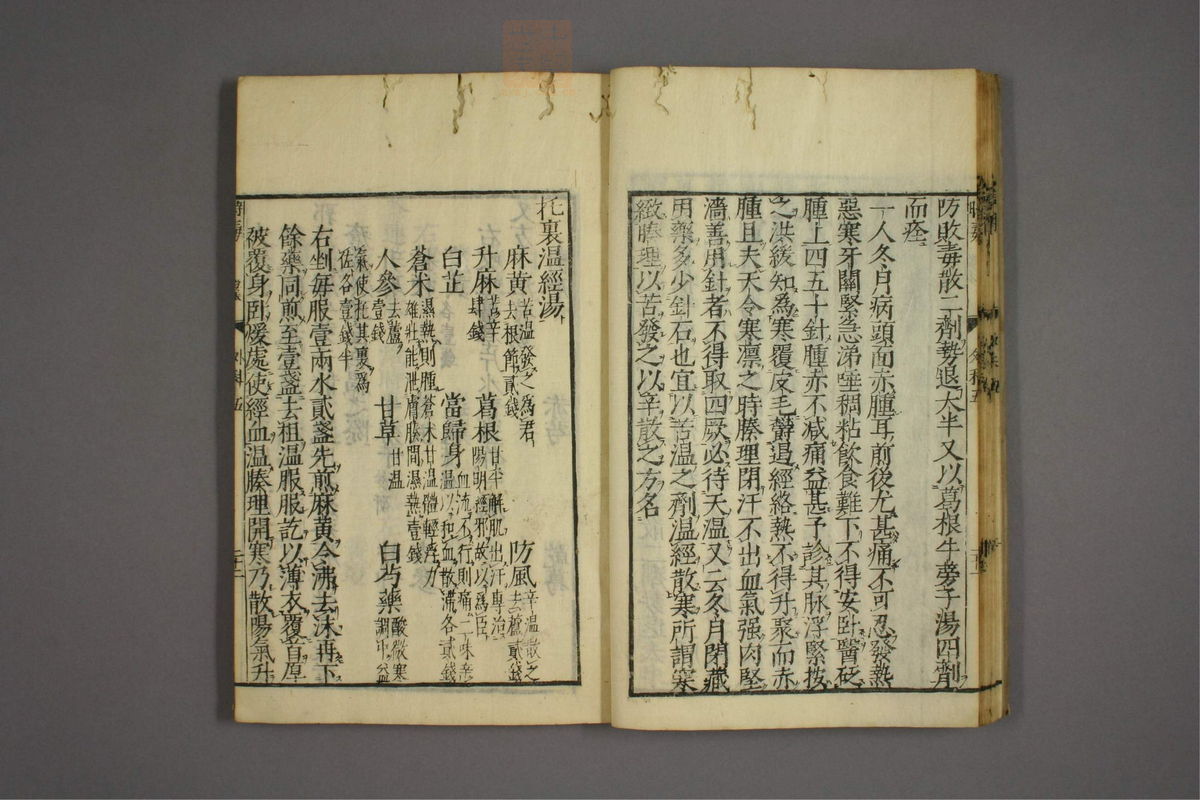 防敗毒散二劑勢退大半又以葛根牛蒡子湯四劑
而痊
一人冬月病頭面赤腫耳前後尤甚痛不可忍發熱
惡寒牙關緊急涕唾稠粘飲食難下不得安臥醫砭
腫上四五十針腫赤不減痛益甚予診其脉浮緊按
之洪緩知為寒覆皮毛欝遏經絡熱不得升聚而赤
腫且夫天令寒凛之時腠理閉汗不出血氣强肉堅
濇善用針者不得取四厥必待天溫又云冬月閉藏
用藥多少針石也宜以苦溫之劑溫經散寒所謂寒
緻腠理以苦發之以辛散之方名
托裏溫經湯
麻黃苦溫發之為君去根節貳錢 防風辛溫散之去蘆貳錢
升麻苦辛肆錢 葛根甘平解肌出汗專治陽明經邪故以為臣
白芷 當歸身血流不行則痛二味辛溫以和血散滯各貳錢
蒼朮濕熱則腫蒼朮甘溫體輕浮力雄壯能泄膚腠間濕熱壹錢
人參去蘆壹錢 甘草甘溫 白芍藥酸微寒調中益
氣使托其裏為佐各壹錢半
右剉每服壹兩水貳盞先煎麻黃令沸去沫再下
餘藥同煎至壹盞去柤溫服服訖以薄衣覆首厚
被覆身卧煖處使經血溫腠理開寒乃散陽氣升